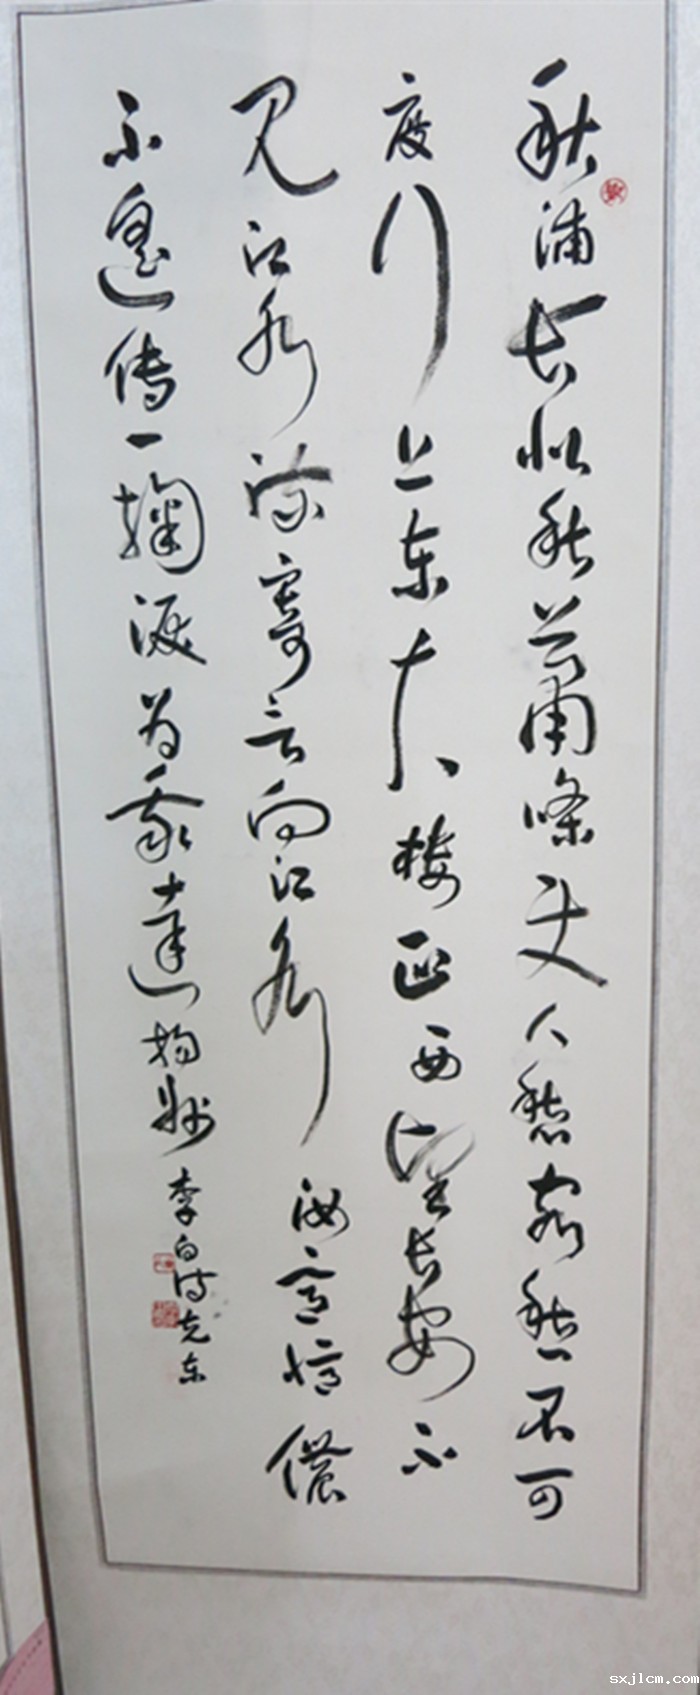 秋浦长似秋萧條使人愁客愁不可
度行上东大楼正西望长安下
见江水流寄言向江水汝意憶儂
不遥传一掬泪为我達扬州
李白诗克东
sxjlcm.com